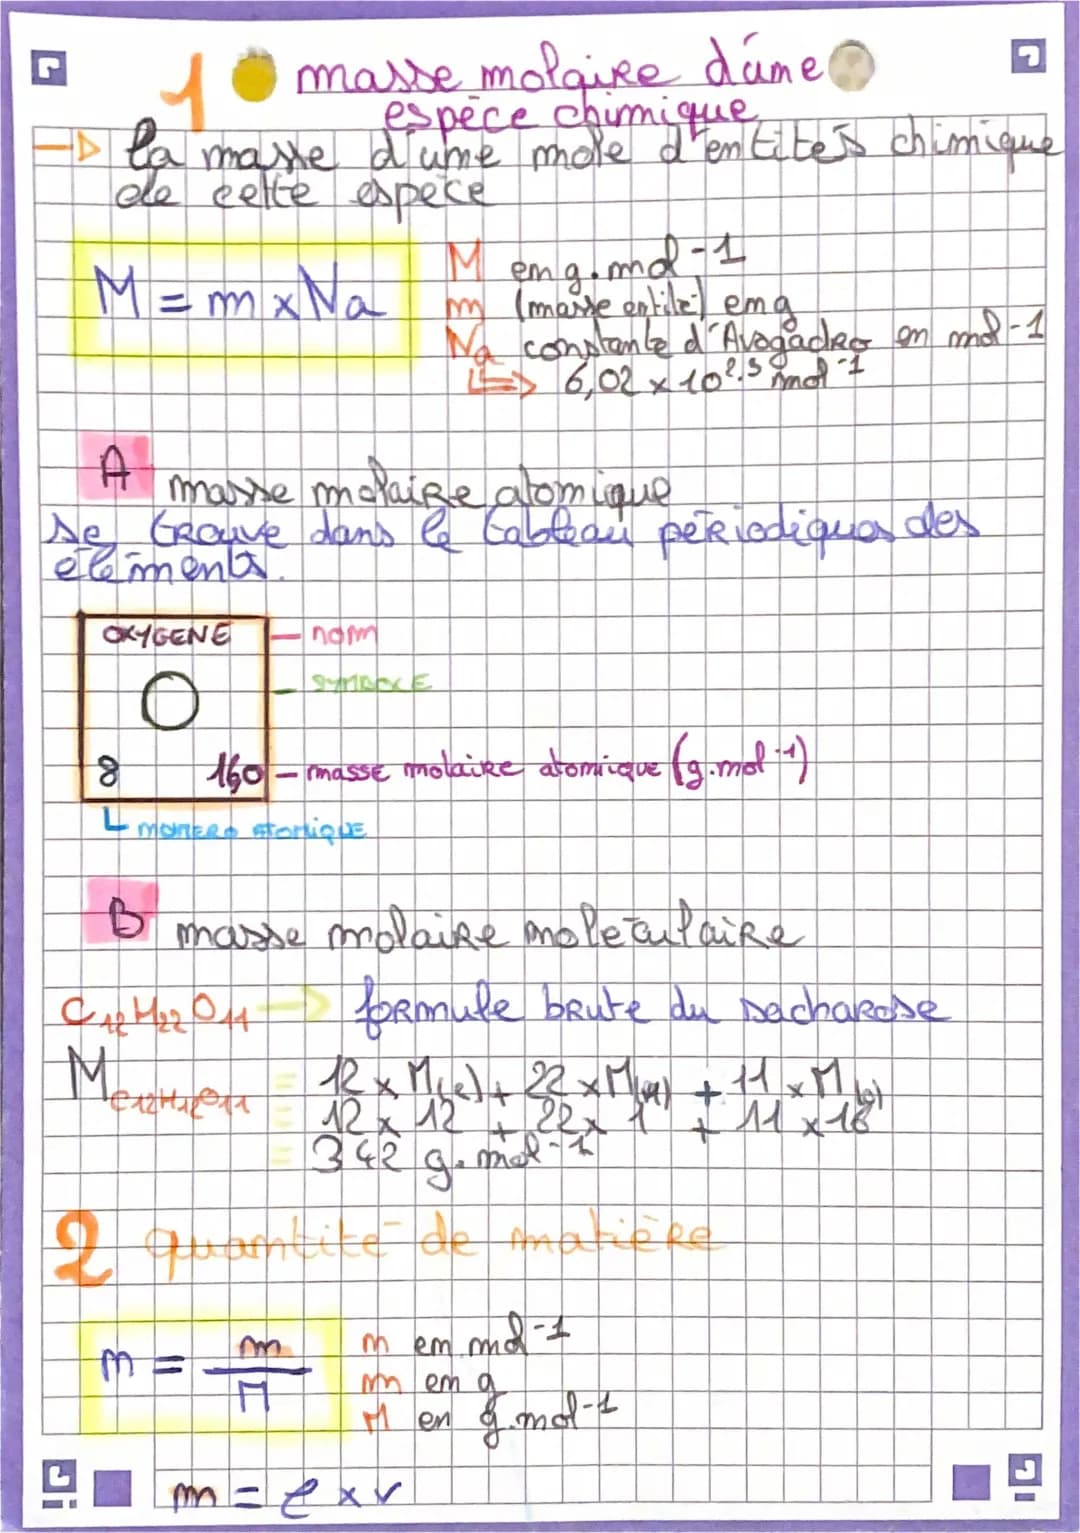 1 masse molaire d'une
espèce chimique
→ la masse d'une mole d'entités chimique
de cette espèce
M = m x Na
M en g.mol-1
m (masse entité) en g
Na constante d'Avogadro en mol-1
↳ 6,02 x 10²³ mol-1
A masse molaire atomique
se trouve dans le tableau périodiques des
éléments.
OXYGENE - nom
O - SYMBOLE
8 16,0 - masse molaire atomique (g.mol-1)
numéro atomique
B masse molaire moléculaire
C12H22O11 → formule brute du saccharose
MC12H22O11 = 12 x M(c) + 22 x M(H) + 11 x M(o)
= 12 x 12 + 22 x 1 + 11 x 16
= 342 g.mol-1
2 quantité de matière
n = m / M
n en mol-1
m en g
M en g.mol-1
m = ρ x v